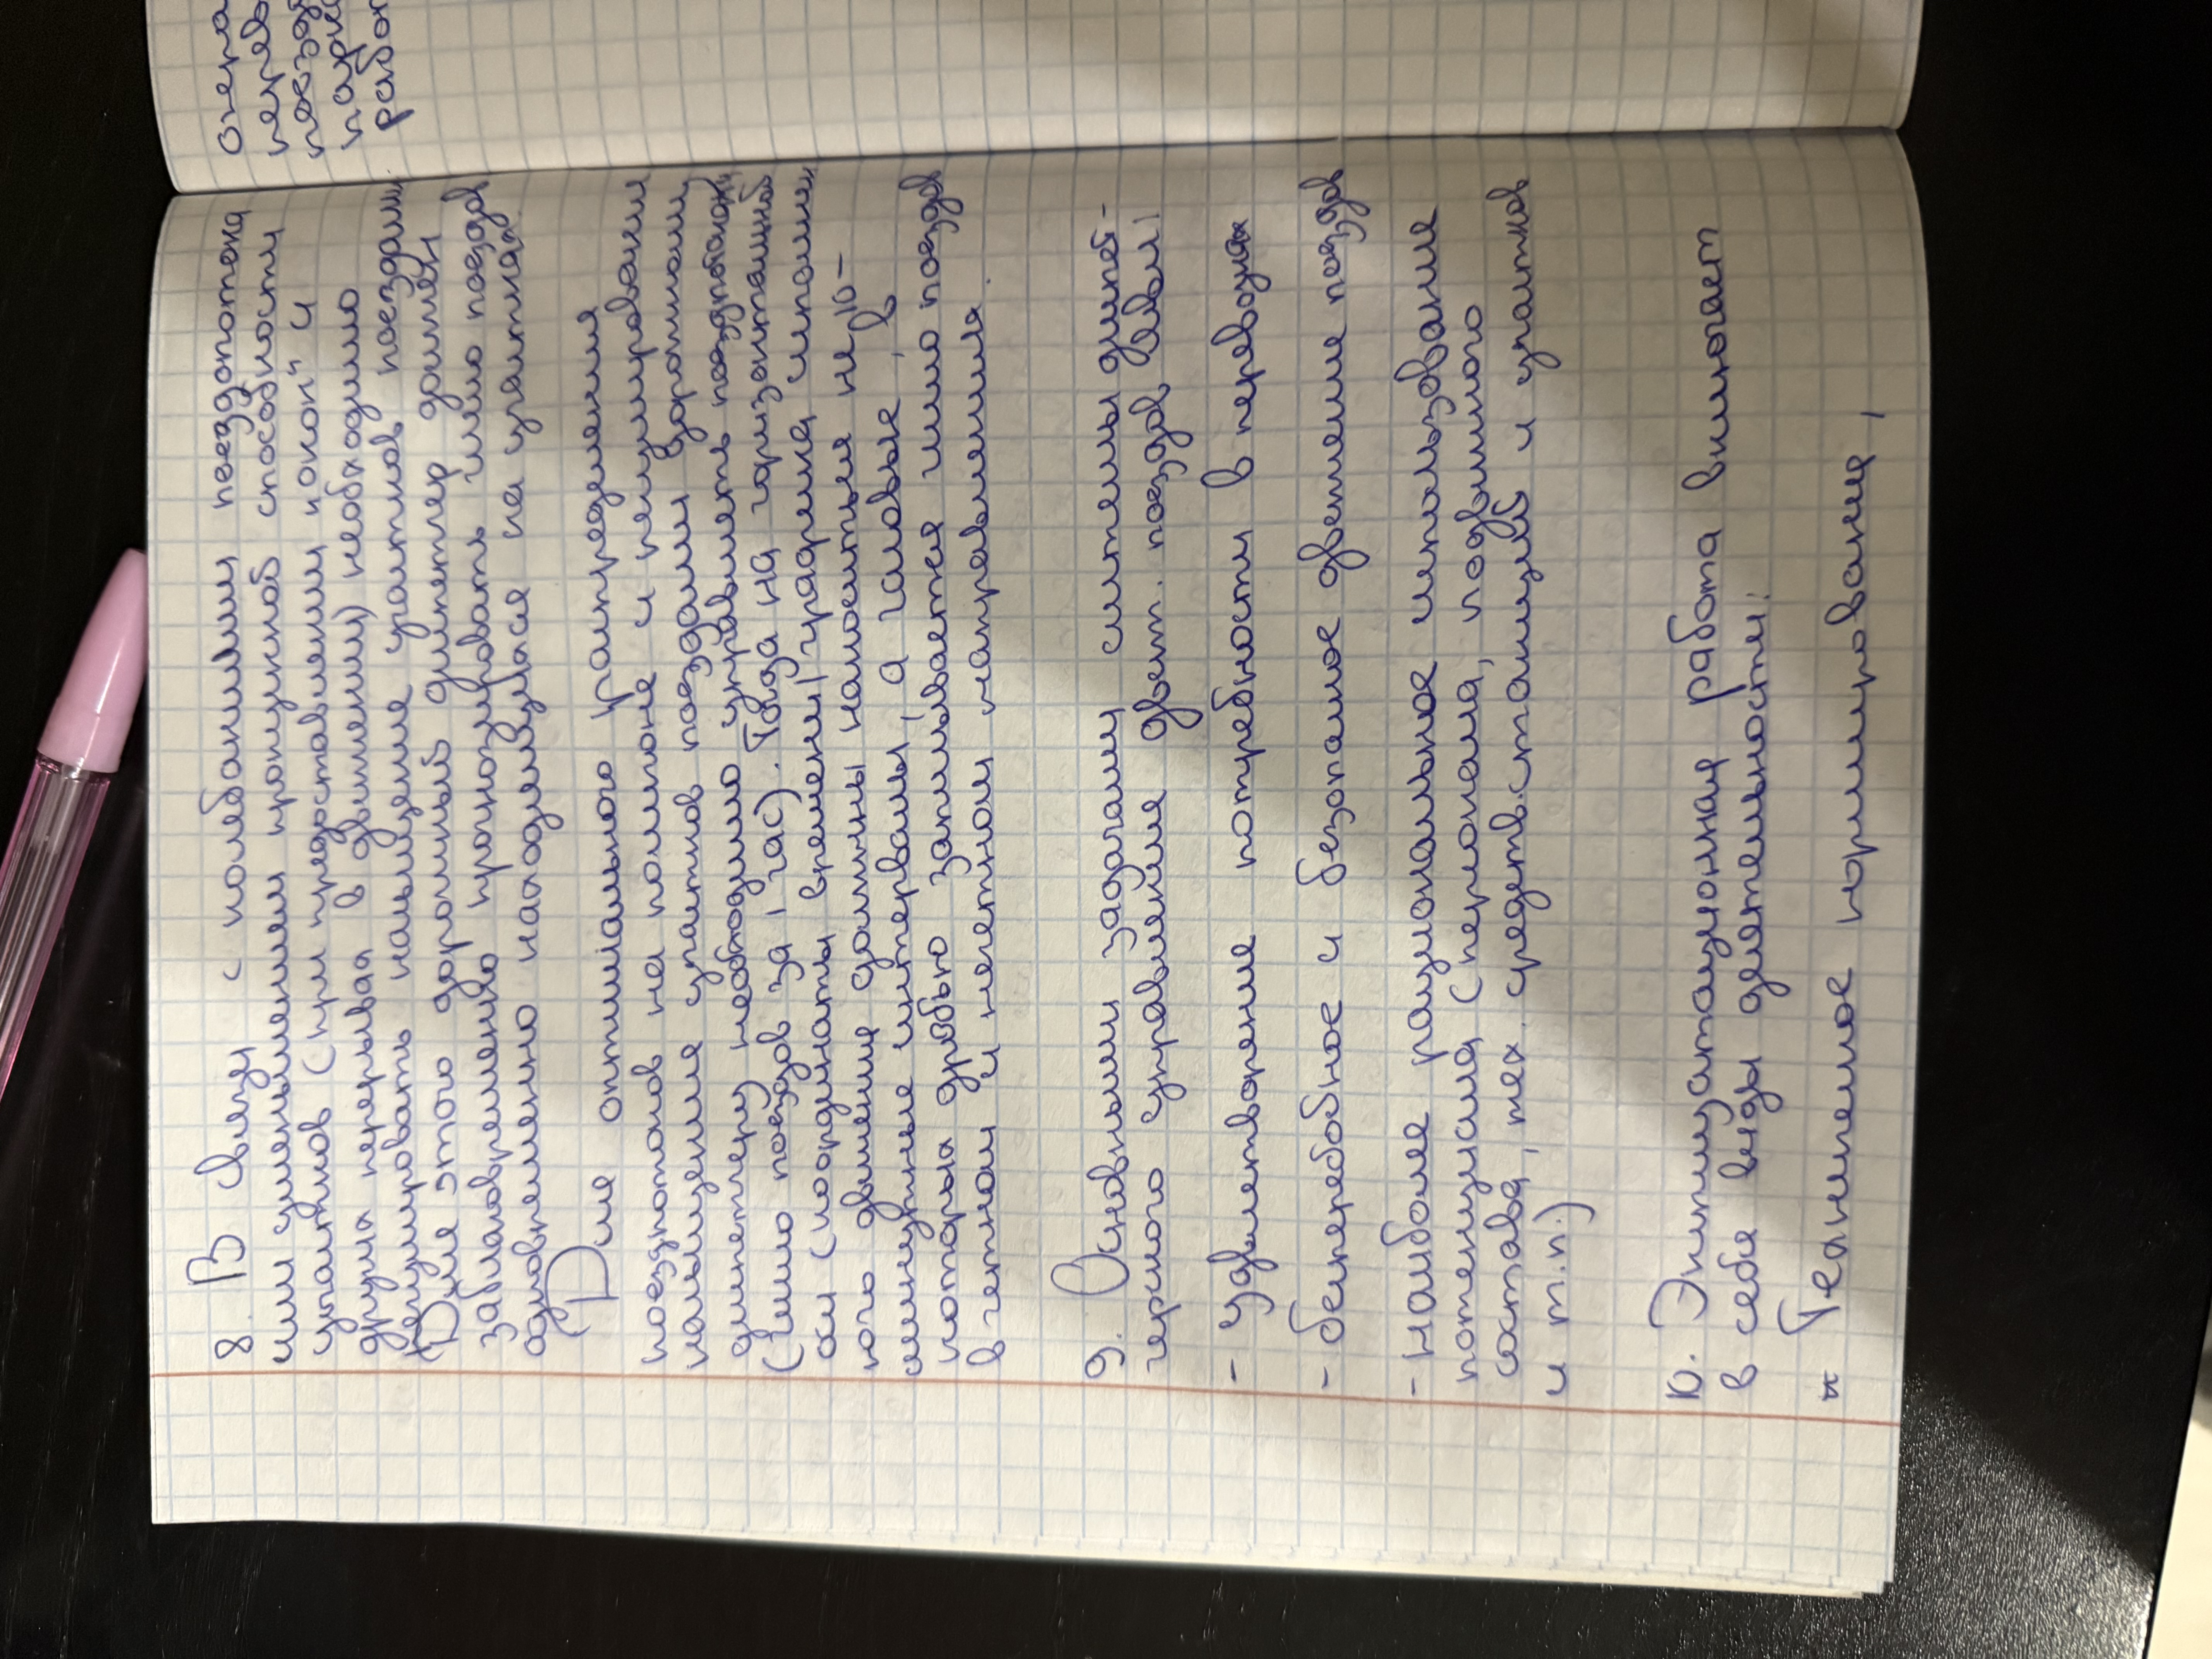 8. В связи с колебаниями поездопотока
или уменьшением пропускной способности
участков (при предоставлении "окон" и
других перерывах в движении) необходимо
регулировать насыщение участков поездами.
Для этого дорожный диспетчер должен
заблаговременно прогнозировать число поездов
одновременно находящихся на участках.
Для оптимального распределения
поездопотоков на полигоне и регулирования
насыщения участков поездами дорожному
диспетчеру необходимо управлять поездопотоками
(число поездов за 1 час). Тогда на горизонтальной
оси (координаты времени) графика исполнен-
ного движения должны наноситься не 10-
минутные интервалы, а часовые, в
которых дробью записывается число поездов
в четном и нечетном направлениях.
9. Основными задачами системы диспет-
черского управления движ. поездов явл.:
- удовлетворение потребности в перевозках
- бесперебойное и безопасное движение поездов
- наиболее рациональное использование
потенциала (персонала, подвижного
состава, тех. средств. станций и участков
и т.п.)
10. Эксплуатационная работа включает
в себя виды деятельности:
* Техническое нормирование,
опера
перев
поезд
парк
работ